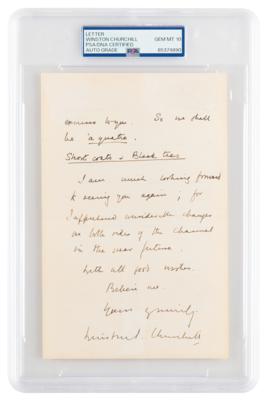 LETTER
WINSTON CHURCHILL
PSA/DNA CERTIFIED
AUTO GRADE
GEM MT 10
85379890
PSA
to you. So we shall
be 'à quatre.
Short coats & Black ties
I am much looking forward
to seeing you again; for
I apprehend considerable changes
on both sides of the Channel
in the near future.
With all good wishes.
Believe me.
Yours sincerely,
Winston S. Churchill